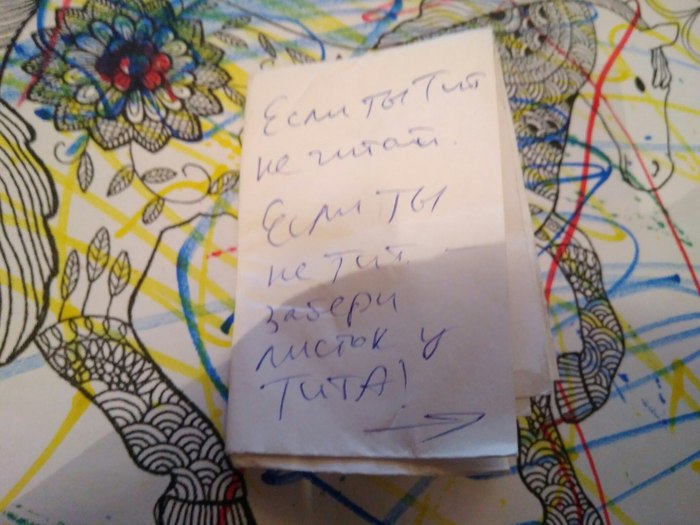 Если ты Тит
не читай.
Если ты
не Тит –
забери
листок у
ТИТА!